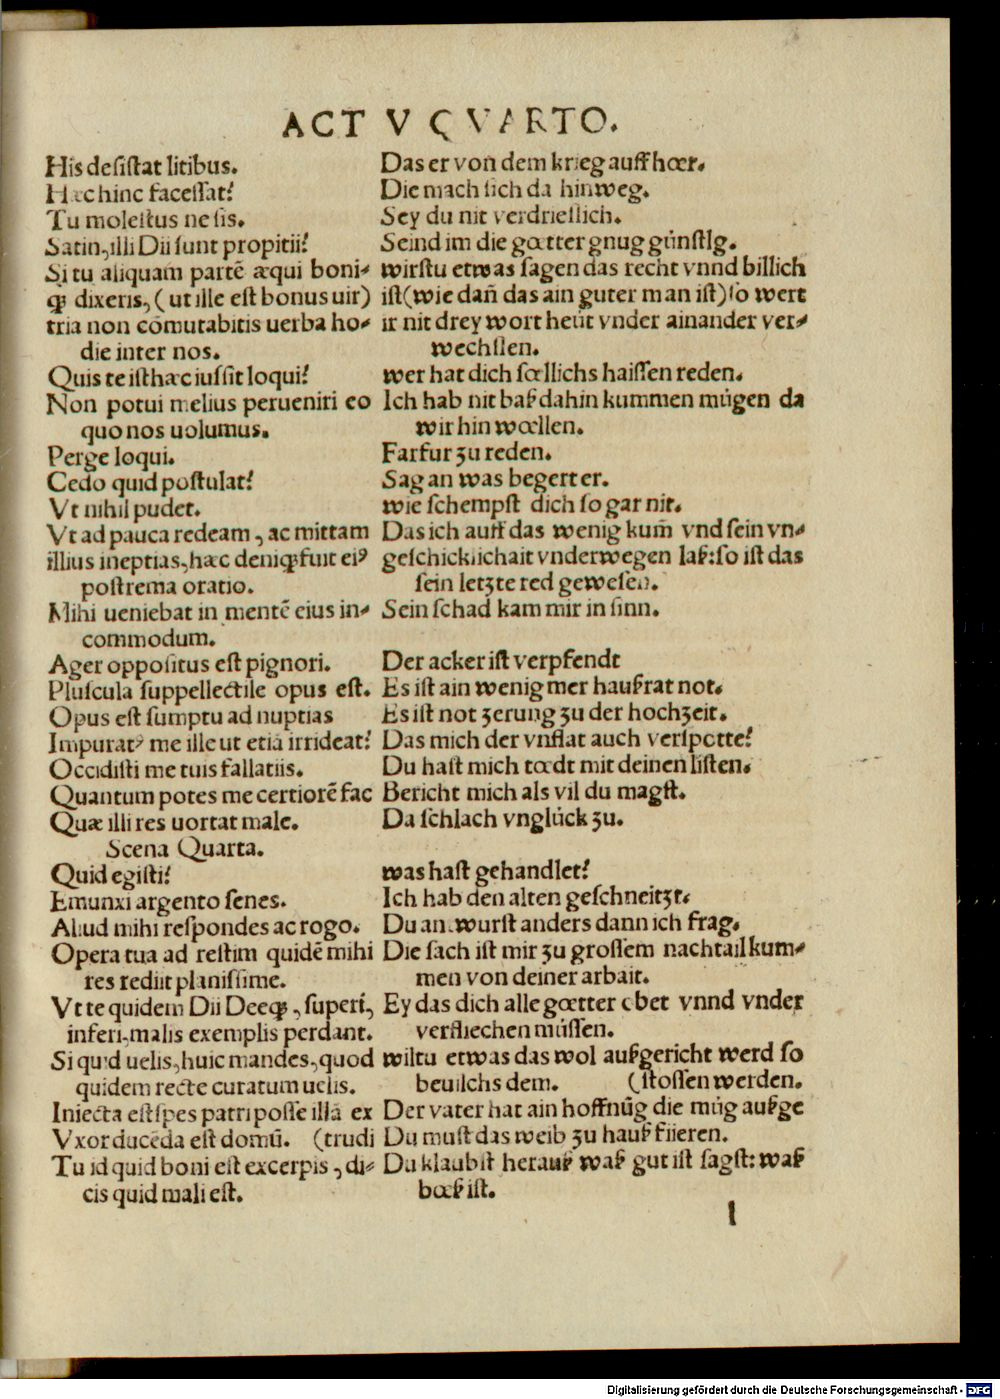 ACTV QVARTO.
His desistat litibus. Das er von dem krieg auffhœr.
Hæc hinc facessat? Die mach sich da hinweg.
Tu molestus ne sis. Sey du nit verdrieslich.
Satin, illi Dii sunt propitii? Seind im die gœtter gnug günstlg.
Si tu aliquam partē æqui boni- wirstu etwas sagen das recht vnnd billich
qꝫ dixeris, (ut ille est bonus uir) ist (wie dañ das ain guter man ist) so wert
tria non cōmutabitis uerba ho- ir nit drey wort heüt vnder ainander ver-
die inter nos. wechslen.
Quis te isthæc iussit loqui? wer hat dich sœllichs haissen reden.
Non potui melius perueniri eo Ich hab nit baß dahin kummen mügen da
quo nos uolumus. wir hin wœllen.
Perge loqui. Farfur zu reden.
Cedo quid postulat? Sag an was begert er.
Vt nihil pudet. wie schempst dich so gar nit.
Vt ad pauca redeam, ac mittam Das ich auff das wenig kum̄ vnd sein vn-
illius ineptias, hæc deniqꝫ fuit eiꝰ geschicklichait vnderwegen laß: so ist das
postrema oratio. sein letzte red gewesen.
Mihi ueniebat in mentē eius in- Sein schad kam mir in sinn.
commodum.
Ager oppositus est pignori. Der acker ist verpfendt
Pluscula suppellectile opus est. Es ist ain wenig mer haußrat not.
Opus est sumptu ad nuptias Es ist not zerung zu der hochzeit.
Impuratꝰ me ille ut etiā irrideat? Das mich der vnflat auch verspotte?
Occidisti me tuis fallatiis. Du hast mich tœdt mit deinen listen.
Quantum potes me certiorē fac Bericht mich als vil du magst.
Quæ illi res uortat male. Da schlach vnglück zu.
Scena Quarta.
Quid egisti? was hast gehandlet?
Emunxi argento senes. Ich hab den alten geschneitzt.
Aliud mihi respondes ac rogo. Du antwurst anders dann ich frag.
Opera tua ad restim quidē mihi Die sach ist mir zu grossem nachtail kum-
res rediit planissime. men von deiner arbait.
Vt te quidem Dii Deeqꝫ, superi, Ey das dich alle gœtter obet vnnd vnder
inferi, malis exemplis perdant. verfliechen müssen.
Si quid uelis, huic mandes, quod wiltu etwas das wol außgericht werd so
quidem recte curatum uelis. beuilchs dem. (stossen werden.
Iniecta est spes patri posse illā ex Der vater hat ain hoffnūg die müg außge
Vxor ducēda est domū. (trudi Du must das weib zu hauß füeren.
Tu id quid boni est excerpis, di- Du klaubst herauß waß gut ist sagst: waß
cis quid mali est. bœß ist.
l
Digitalisierung gefördert durch die Deutsche Forschungsgemeinschaft - DFG